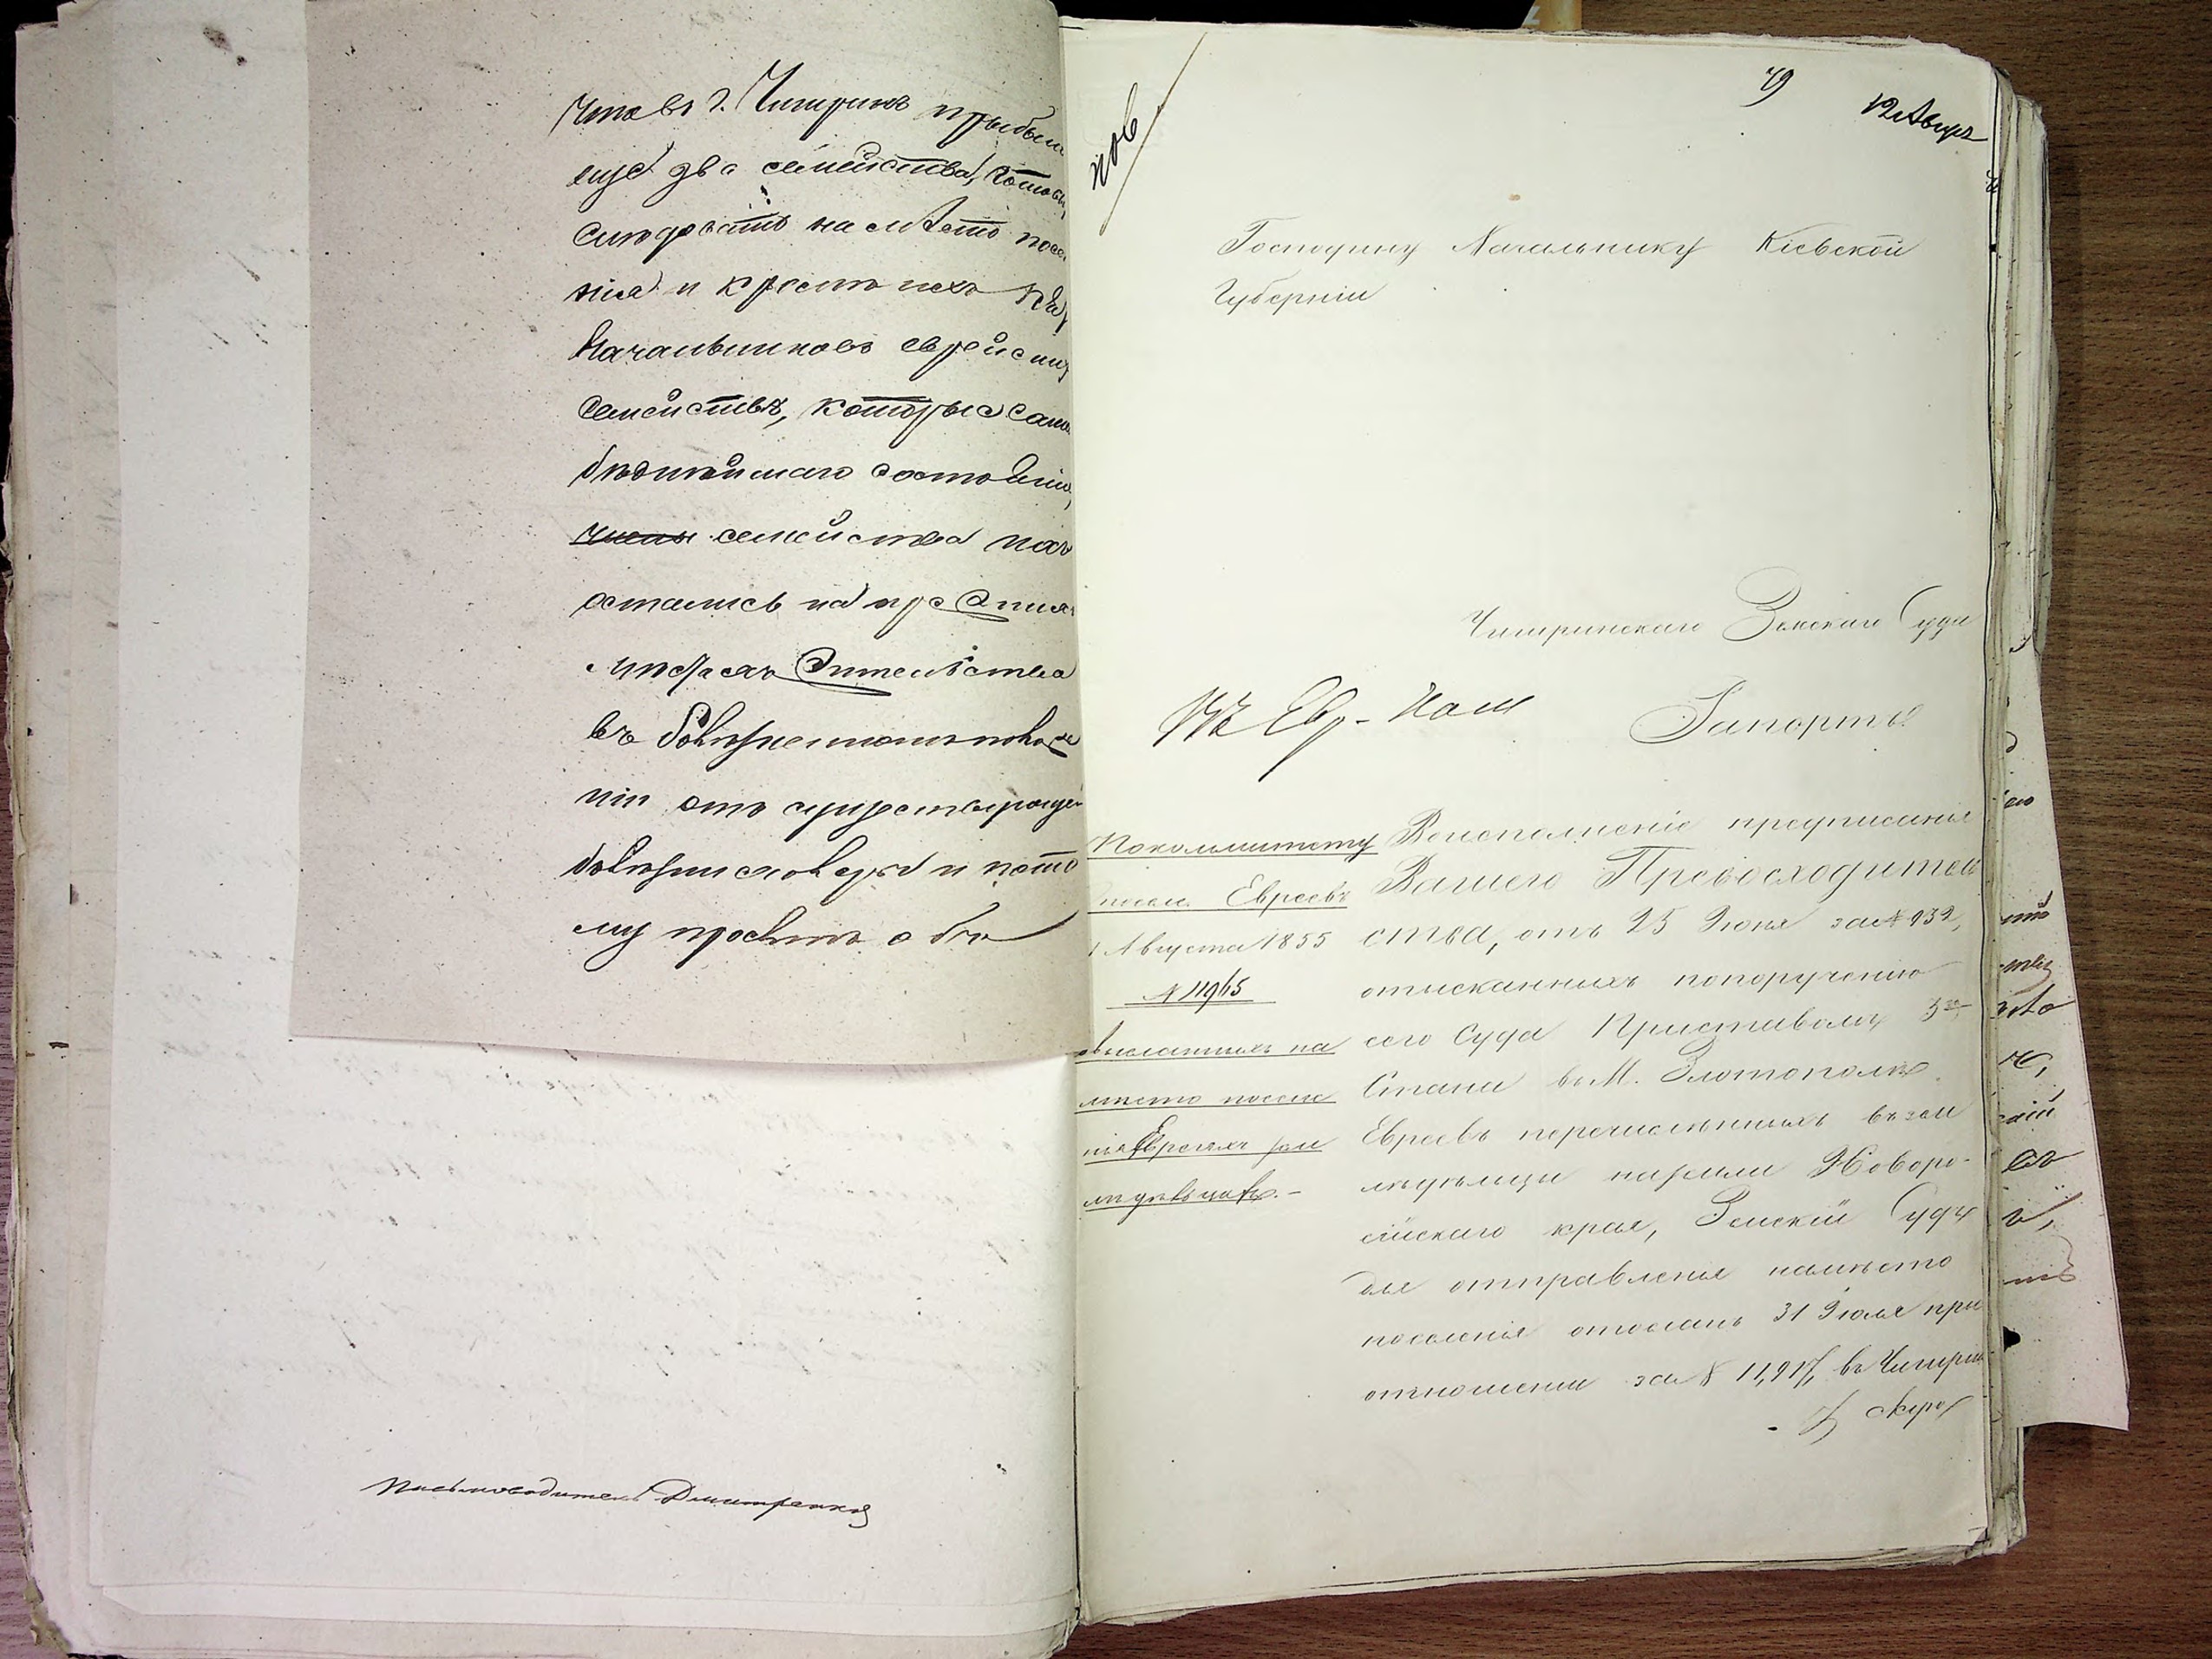 что въ г. Чигиринъ прибыли
еще два семейства, готовы
слѣдовать на мѣсто посе
нія и кромѣ ихъ
начальниковъ еврейских
семействъ, которые самаго
бѣднѣйшаго состоянія,
члены семейства ихъ
остались на прежних
мѣстахъ жительства
въ
ніи отъ существующей
и пото
му просить о
Письмоводитель Дмитренко
49
12 Август
Господину Начальнику Кіевской
Губерніи
Чигиринскаго Земскаго Суда
Рапортъ
По комитету
посел. Евреевъ
1 Августа 1855
№ 11965
о высланныхъ на
мѣсто поселе
нія Евреяхъ зем
ледѣльцахъ.-
Воисполненіе предписанія
Вашего Превосходитель
ства, отъ 25 Іюня за № 932,
отысканныхъ попорученію
сего Суда Приставомъ 3го
Стана въ М. Златополѣ
Евреевъ перечисленныхъ въ зем
ледѣльцы на земли Новоро-
сійскаго края, Земскій Судъ
для отправленія намѣсто
поселенія отослалъ 31 Іюля при
отношеніи за № 11,917, въ Чигирин